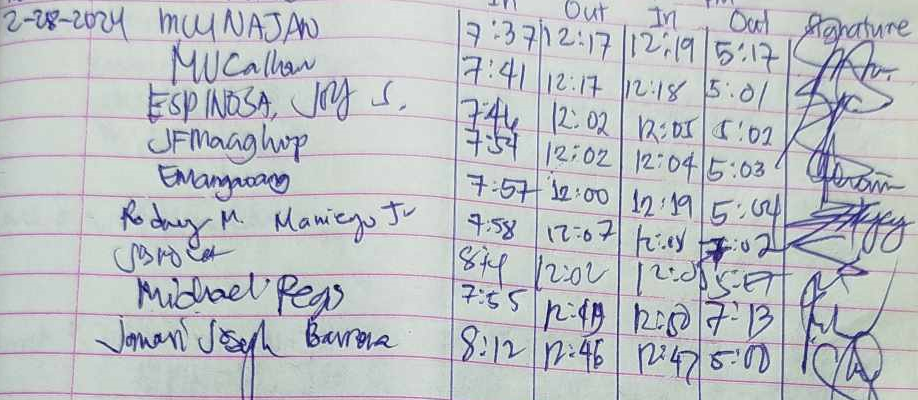 In Out In Out Signature
2-28-2024 MCUNAJAN 7:37 12:17 12:19 5:17
MUCalhan 7:41 12:17 12:18 5:01
ESPINOSA, JOY S. 7:46 12:02 12:05 5:02
JFMaaghop 7:54 12:02 12:04 5:03
7:57 12:00 12:19 5:04
Rodney M. Maniego Jr 7:58 12:07 :02
12:02
Michael Pegs 7:55 12:49 12:50 7:13
Joseph Barrora 8:12 12:46 12:47 5:00